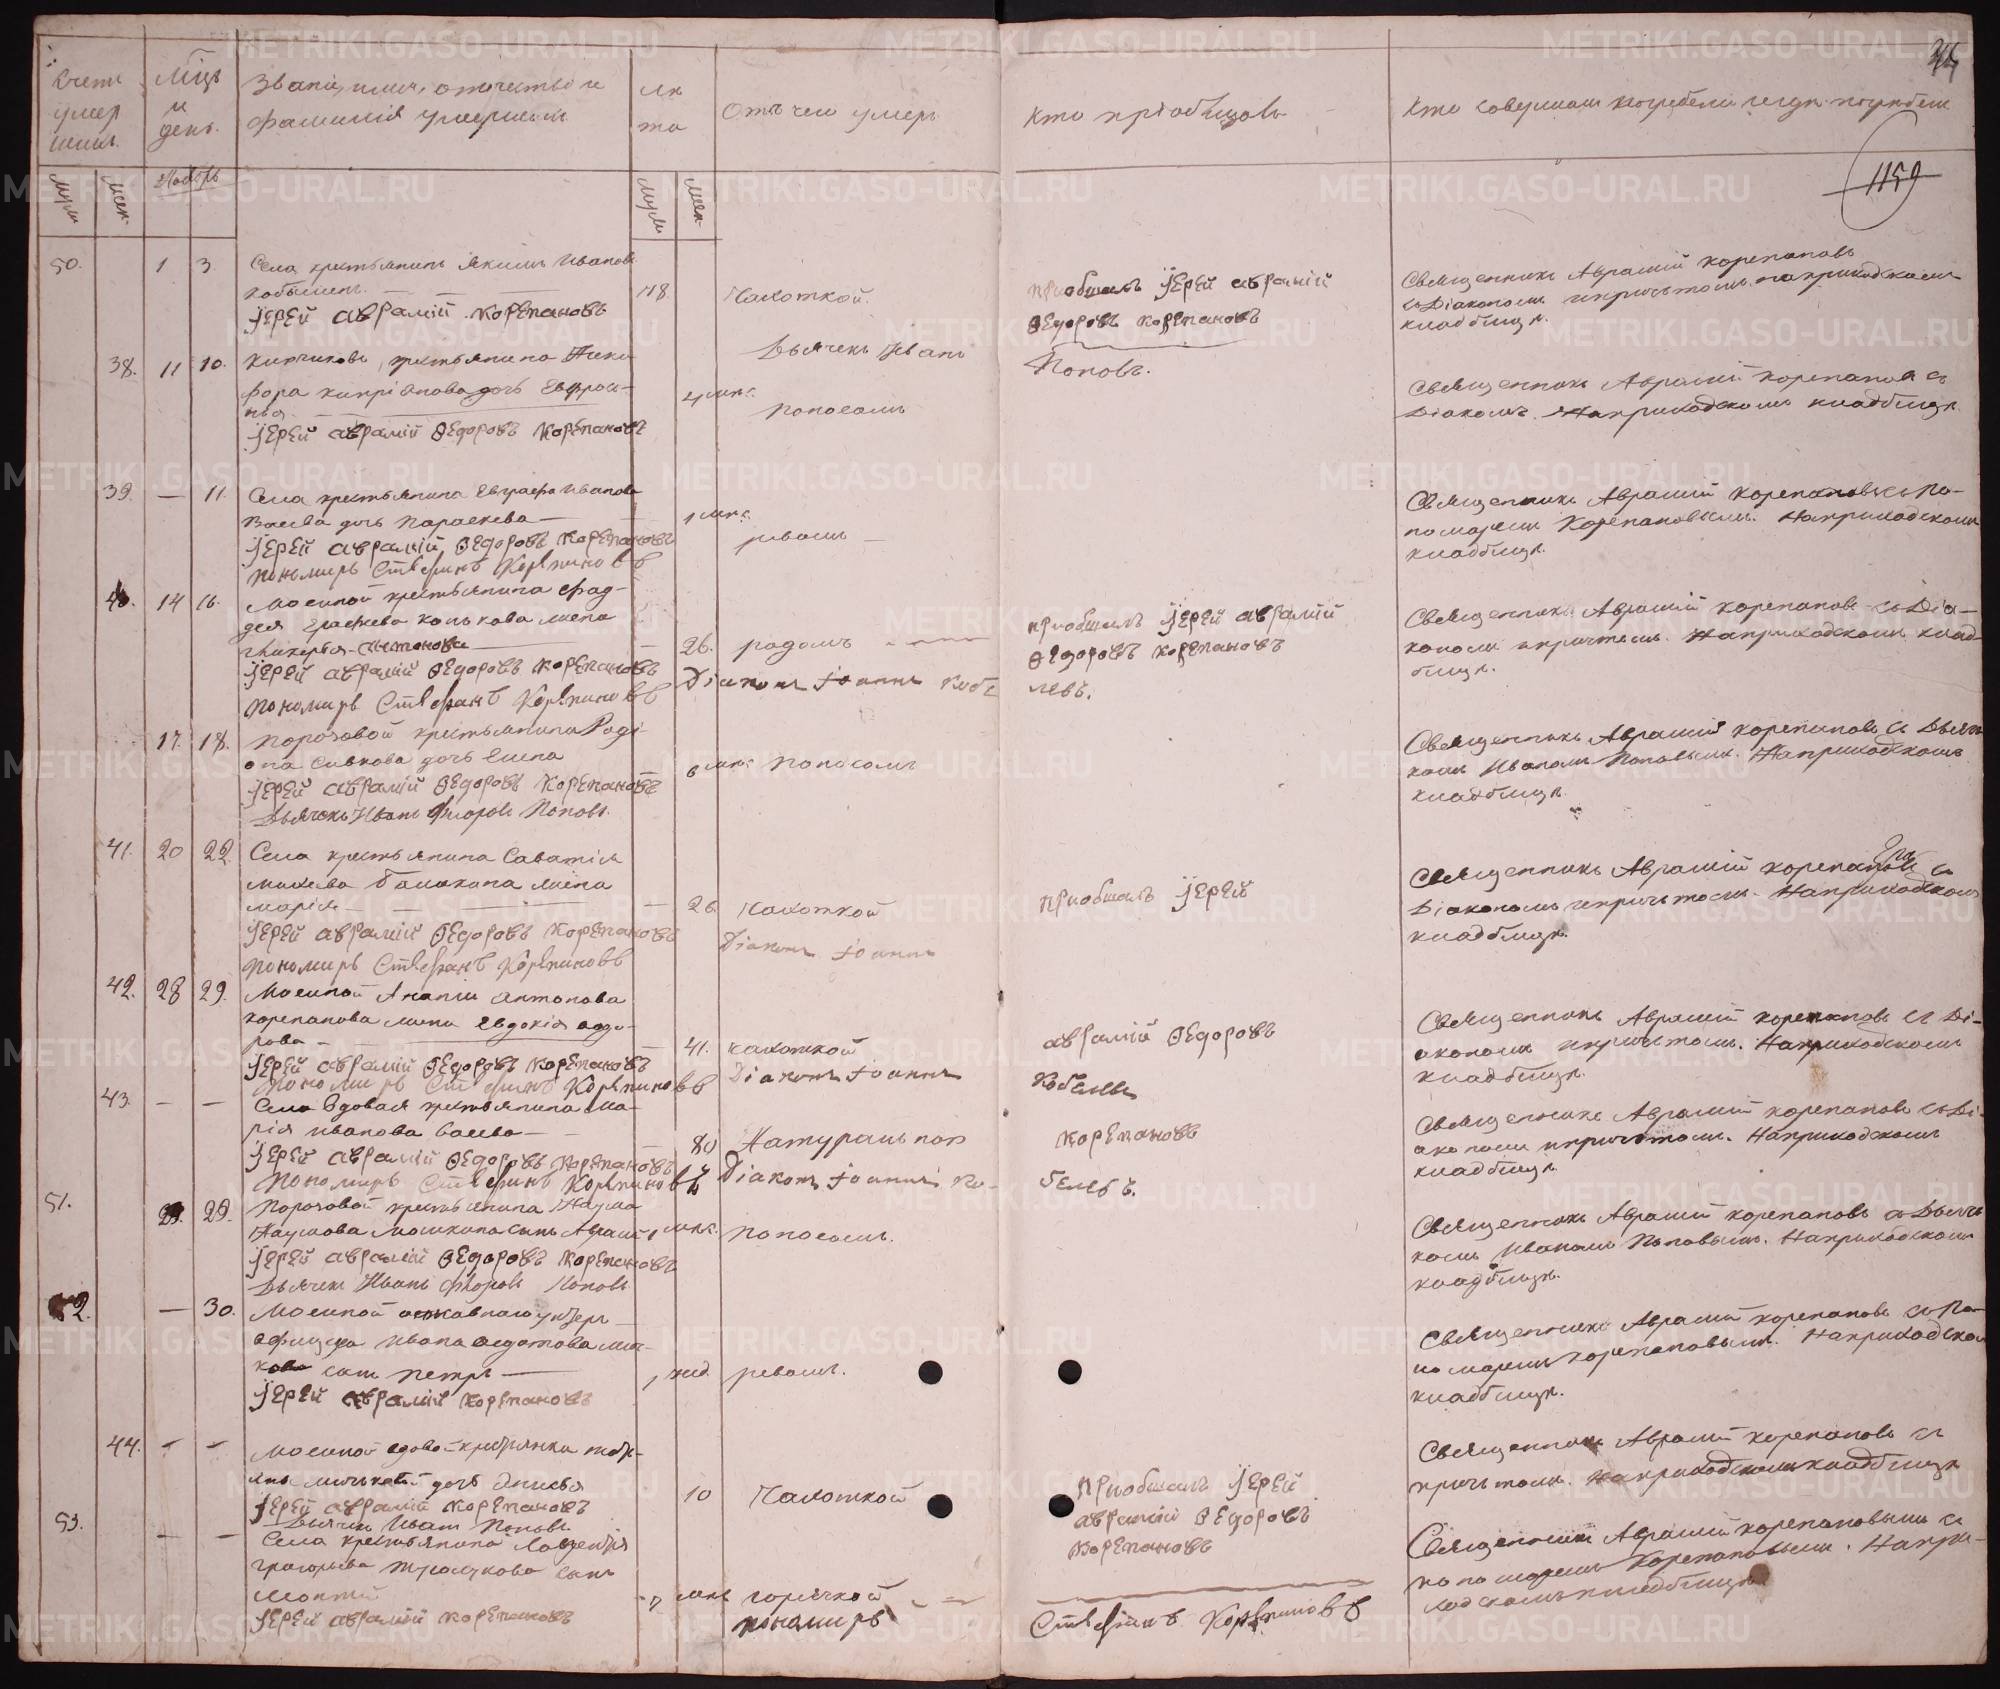 Счетъ умер шихъ.
Мѣсць и день.
Званіе, имя, отчество и фамилія умершихъ
лѣ та
Отъ чего умеръ
Кто пріобщалъ
Кто совершалъ погребеніе и гдѣ погребены
1159
Муж.
Жен.
Ноябрь
Муж.
Жен.
50.
1
3
Села крестьянинъ Якимъ Ивановъ
Кобелевъ.
78
Чахоткой.
Іерей Аврамій Корепановъ
Пріобщалъ Іерей Аврамій
Ѳедоровъ Корепановъ
Священникъ Аврамій Корепановъ
съ Діакономъ и причтомъ. на приходскомъ
кладбищѣ.
38.
11
10.
крестьянина Ники
фора Кипріянова дочь Евфроси-
нья
4 мнс.
Поносомъ
Дьячекъ Иванъ
Поповъ.
Іерей Аврамій Ѳедоровъ Корепановъ
Священникъ Аврамій Корепановъ съ
Діакомъ. На приходскомъ кладбищѣ.
39.
—
11.
Села крестьянина Евграфа Иванова
дочь Параскева
1 мнс.
ревомъ
Іерей Аврамій Ѳедоровъ Корепановъ
Пономарь Стефанъ Корепановъ
Священникъ Аврамій Корепановъ съ По-
номаремъ Корепановымъ. На приходскомъ
кладбищѣ.
40.
14
16.
крестьянина Фад-
дея жена
Гликерья Антонова
26.
родомъ
Іерей Аврамій Ѳедоровъ Корепановъ
Діаконъ Іоаннъ Кобе
левъ.
Пономарь Стефанъ Корепановъ
Пріобщалъ Іерей Аврамій
Ѳедоровъ Корепановъ
Священникъ Аврамій Корепановъ съ Діа-
кономъ и причтомъ. На приходскомъ клад-
бищѣ.
17.
18.
Порозовой крестьянина Роді-
она Сивкова дочь Елена
6 мнс
Поносомъ
Іерей Аврамій Ѳедоровъ Корепановъ
Дьячекъ Иванъ Поповъ.
Священникъ Аврамій Корепановъ съ Дьяч-
комъ Иваномъ Поповымъ. На приходскомъ
кладбищѣ.
41.
20
22.
Села крестьянина Саватія
жена
Марія
26
Чахоткой
Іерей Аврамій Ѳедоровъ Корепановъ
Діаконъ Іоаннъ
Пономарь Стефанъ Корепановъ
Пріобщалъ Іерей
Священникъ Аврамій Корепановъ съ
Діакономъ и причтомъ. На приходскомъ
кладбищѣ.
42.
28
29.
Ананіи Антонова
Корепанова жена Евдокія Ѳедо-
рова
41.
Чахоткой
Іерей Аврамій Ѳедоровъ Корепановъ
Діаконъ Іоаннъ
Пономарь Стефанъ Корепановъ
Аврамій Ѳедоровъ
Кобелевъ
Священникъ Аврамій Корепановъ съ Ді-
акономъ и причтомъ. На приходскомъ
кладбищѣ.
43.
—
—
Села вдовая крестьянина Ма-
рія Иванова
80
Натуральной
Іерей Аврамій Ѳедоровъ Корепановъ
Діаконъ Іоаннъ Ко-
белевъ.
Пономарь Стефанъ Корепановъ
Корепановъ
Священникъ Аврамій Корепановъ съ Ді-
акономъ и причтомъ. На приходскомъ
кладбищѣ.
51.
29.
29.
Порозовой крестьянина Наума
Наумова сынъ Аврамій
1 мнс.
Поносомъ.
Іерей Аврамій Ѳедоровъ Корепановъ
Дьячекъ Иванъ Поповъ
Священникъ Аврамій Корепановъ съ Дьяч-
комъ Иваномъ Поповымъ. На приходскомъ
кладбищѣ.
52.
—
30.
отставнаго унтеръ
офицера Ивана Ѳедотова
сынъ Петръ
1 нед.
ревомъ.
Іерей Аврамій Корепановъ
Священникъ Аврамій Корепановъ съ По-
номаремъ Корепановымъ. На приходском
кладбищѣ.
44.
—
—
вдовой крестьянки
дочь Анисья
10
Чахоткой
Іерей Аврамій Корепановъ
Дьячекъ Иванъ Поповъ
Пріобщалъ Іерей
Аврамій Ѳедоровъ
Корепановъ
Священникъ Аврамій Корепановъ съ
причтомъ. На приходскомъ кладбищѣ
53.
—
—
Села крестьянина Лаврентія
Григорьева сынъ
мнс
горячкой
Іерей Аврамій Корепановъ
Пономарь
Стефанъ Корепановъ
Священникъ Аврамій Корепановымъ съ
пономаремъ Корепановымъ. На при-
ходскомъ кладбищѣ
METRIKI.GASO-URAL.RU